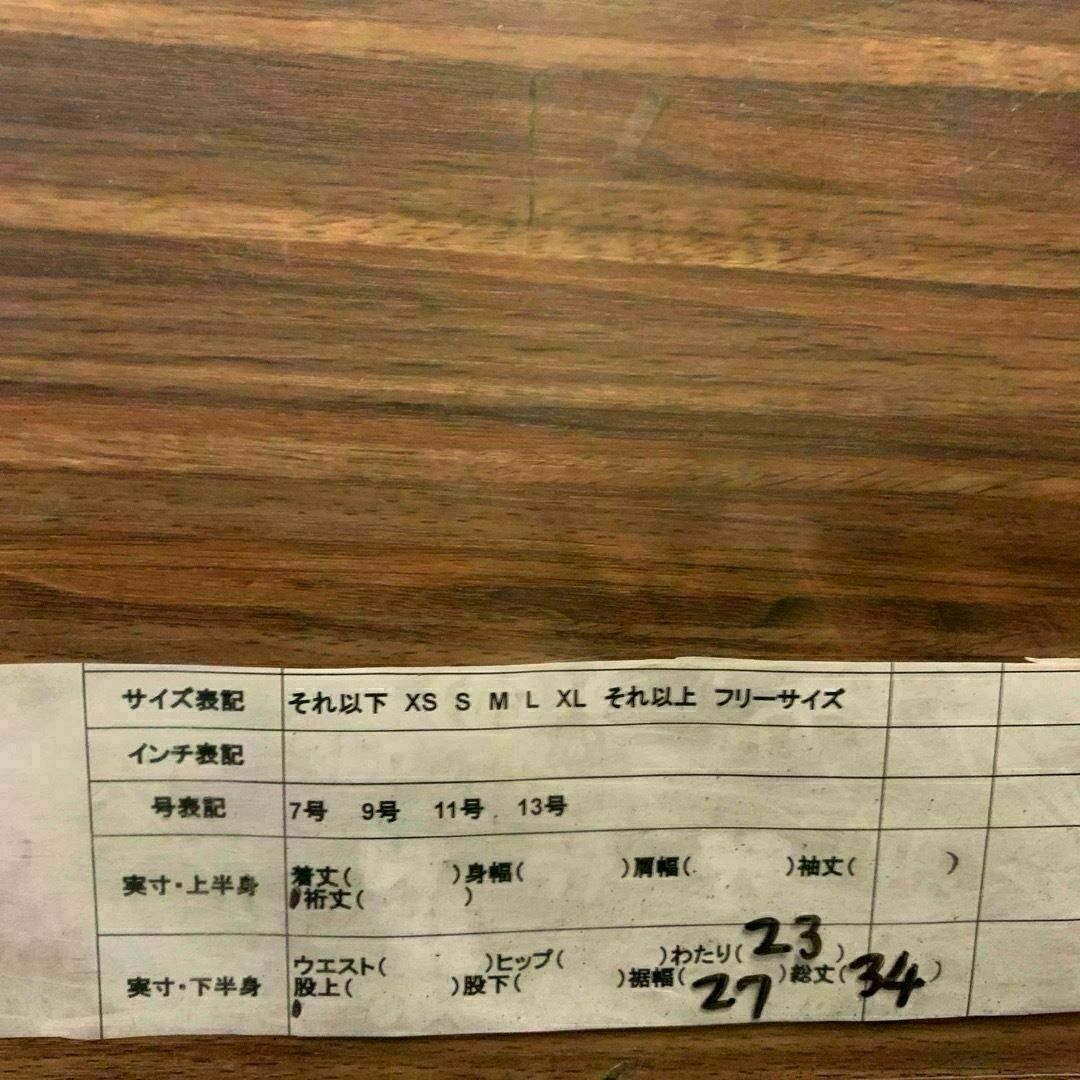 サイズ表記 それ以下 XS S M L XL それ以上 フリーサイズ
インチ表記
号表記 7号 9号 11号 13号
実寸・上半身 着丈( )身幅( )肩幅( )袖丈( )
裄丈( )
実寸・下半身 ウエスト( )ヒップ( )わたり(23)
股上( )股下( )裾幅(27)総丈(34)